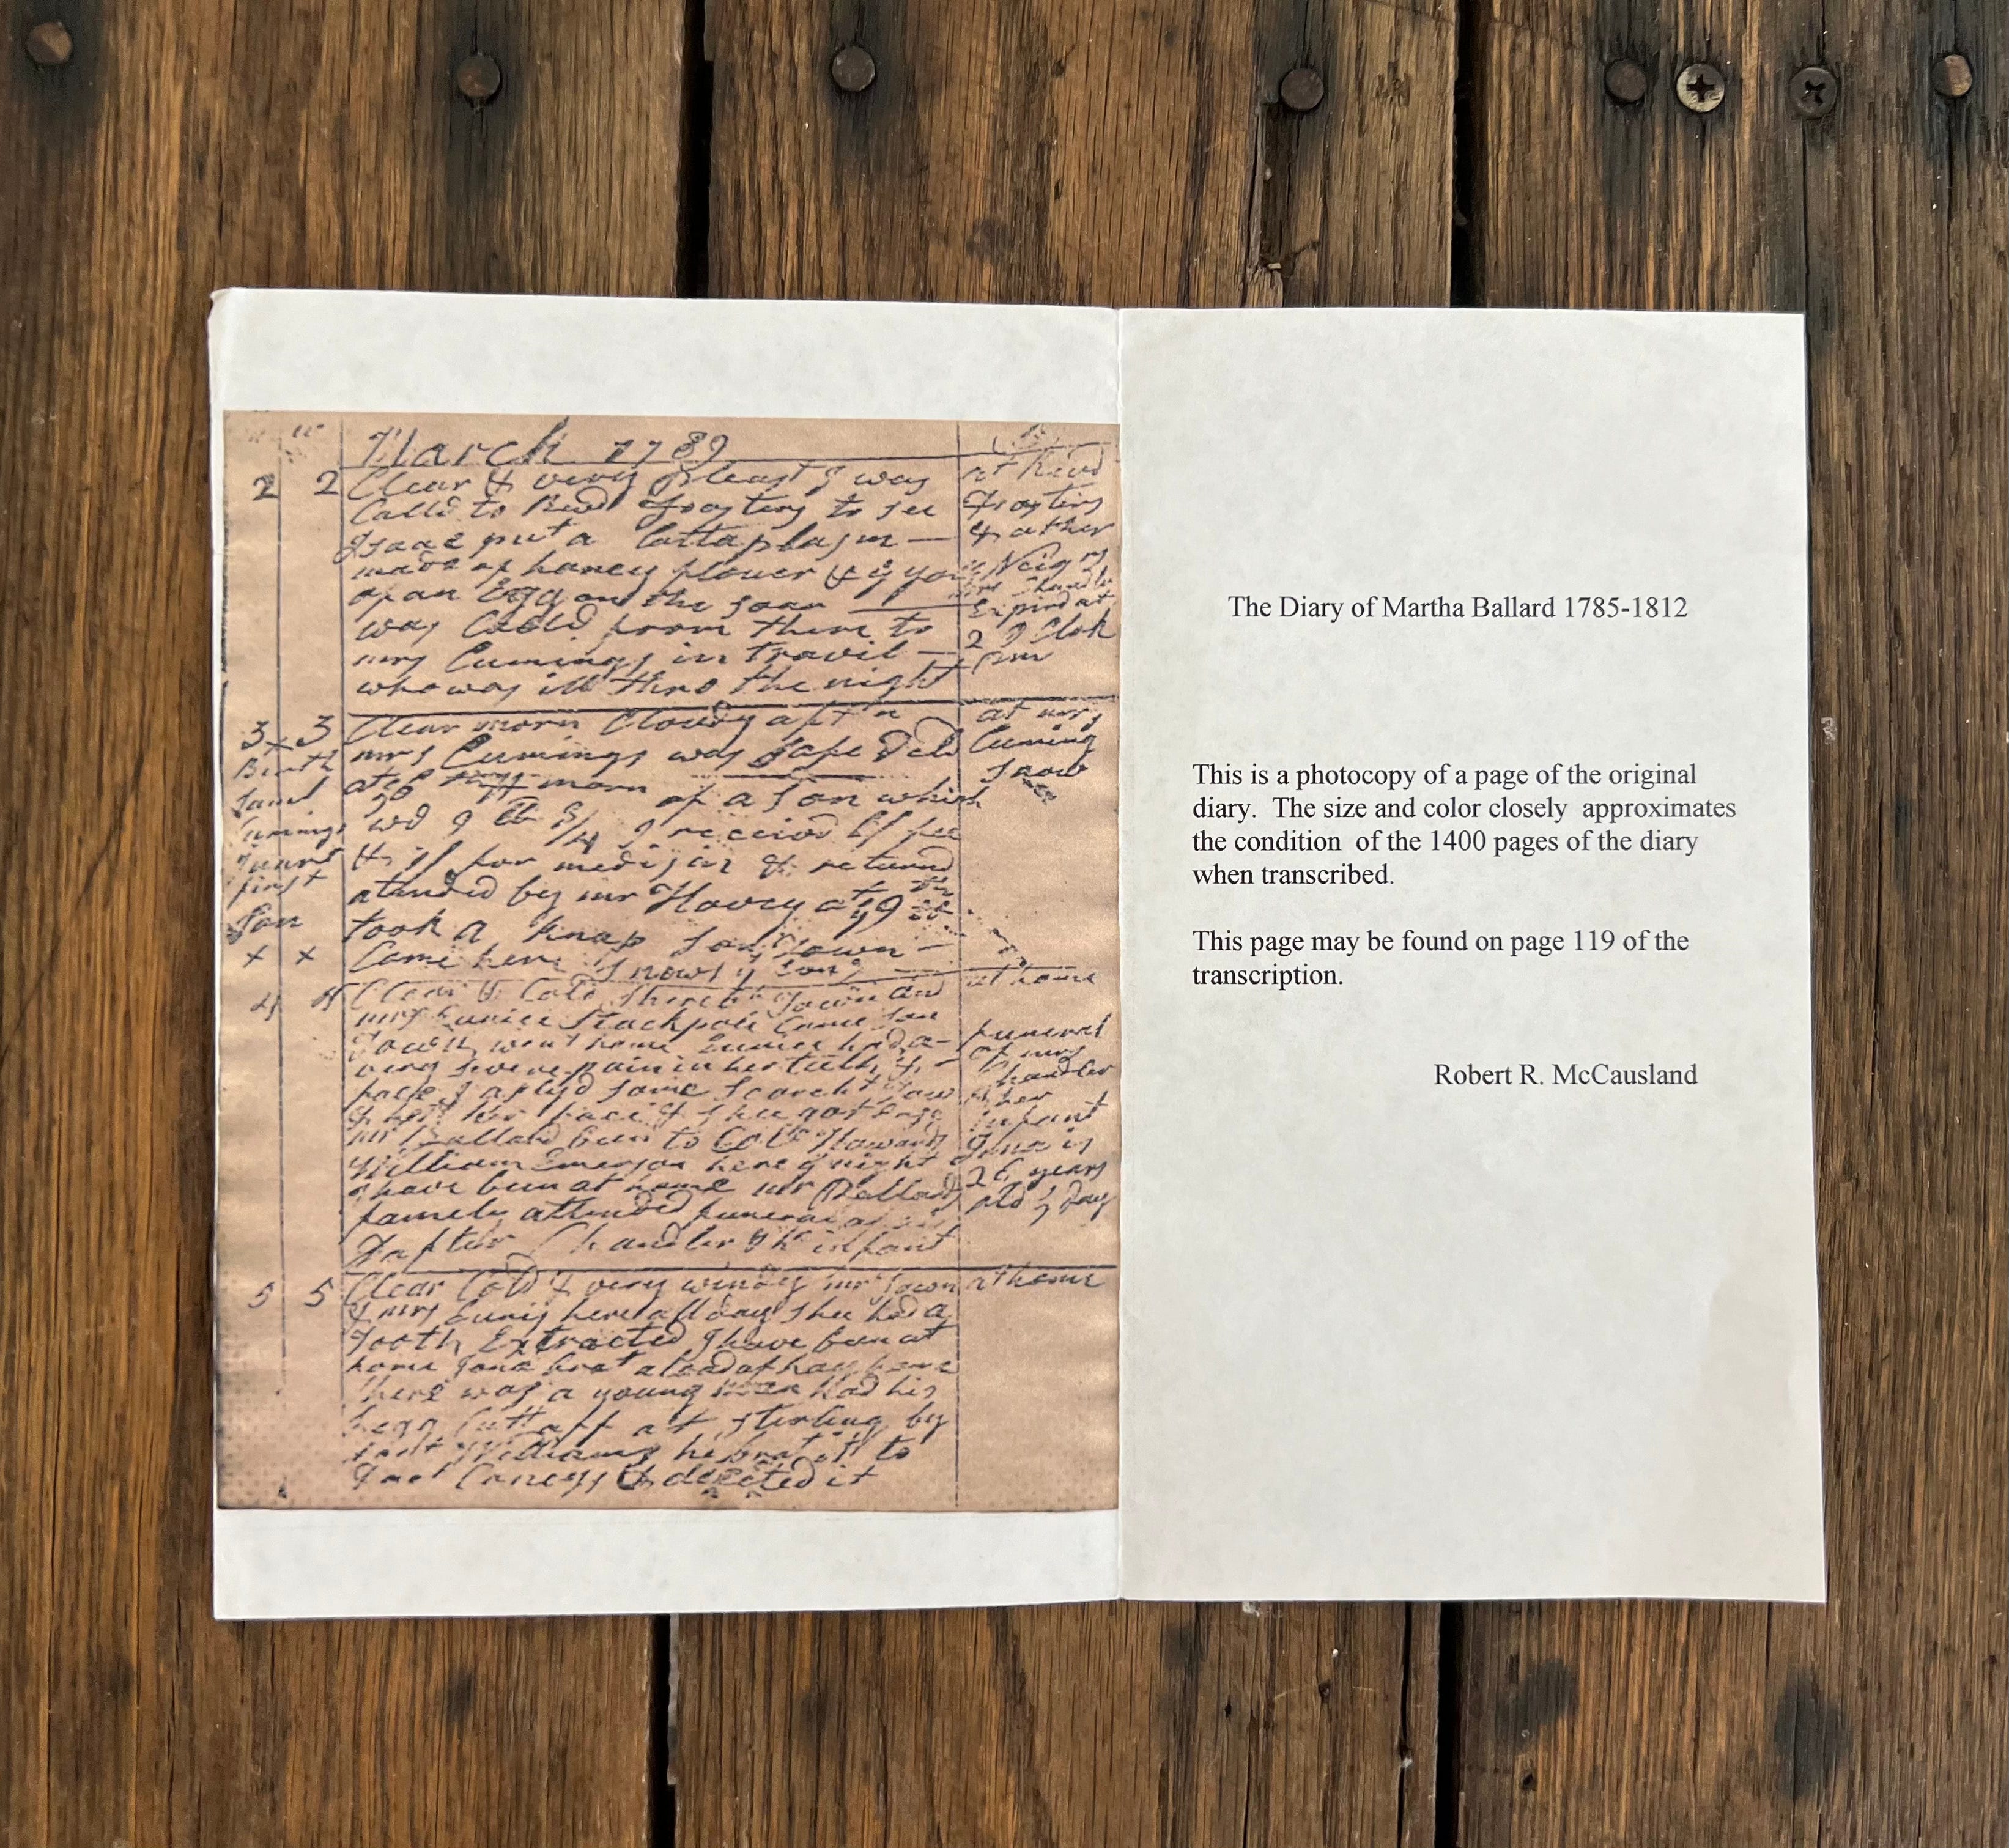 March 1789
2 2 Clear & very pleast I was
Calld to Revd Fosters to see
Isaac put a Cattaplasm —
made of honey flower & ye yolk
of an Egg on the soar
was Calld from there to
mrs Cumings in Travil —
who was ill thro the night
at Revd
Fosters
& other
Neigrs
mrs Chandler
Expird at
2 O Clok
pm
3 x 3 Clear morn Cloudy aft n
mrs Cumings was safe Deld
at 6 morn of a son which
wd 9 lb 3/4 I receivd 6/ fee
& 1/ for medisin & returnd
attended by mr Hovey at 9
took a knap son Town
Came here
Birth
Saml
Cumings
first
Son
x x
at mrs
Cuming
snow
4 4 Clear & Cold son Town and
mrs Eunice Stackpole Came son
Town went home Eunice had a
very severe pain in her teeth &
face I aplyd some scorcht Tow
& her face & shee got Ease
mr Ballard been to Colo Howards
William Emerson here ye night
I have been at home mr Ballards
famely attended funeral of
Dafter Chandler & he infant
at home
funeral
of mrs
Chandler
& her
infant
26 years
old ys Day
5 5 Clear Cold & very windy mr Town
& mrs Eunis here all day shee had a
Tooth Extracted I have been at
home Jona brot a load of hay home
there was a young man had his
Legg Cutt off at sterling by
Doct Williams he brot it to
Doct Coneys & desected it
at home
The Diary of Martha Ballard 1785-1812
This is a photocopy of a page of the original
diary. The size and color closely approximates
the condition of the 1400 pages of the diary
when transcribed.
This page may be found on page 119 of the
transcription.
Robert R. McCausland